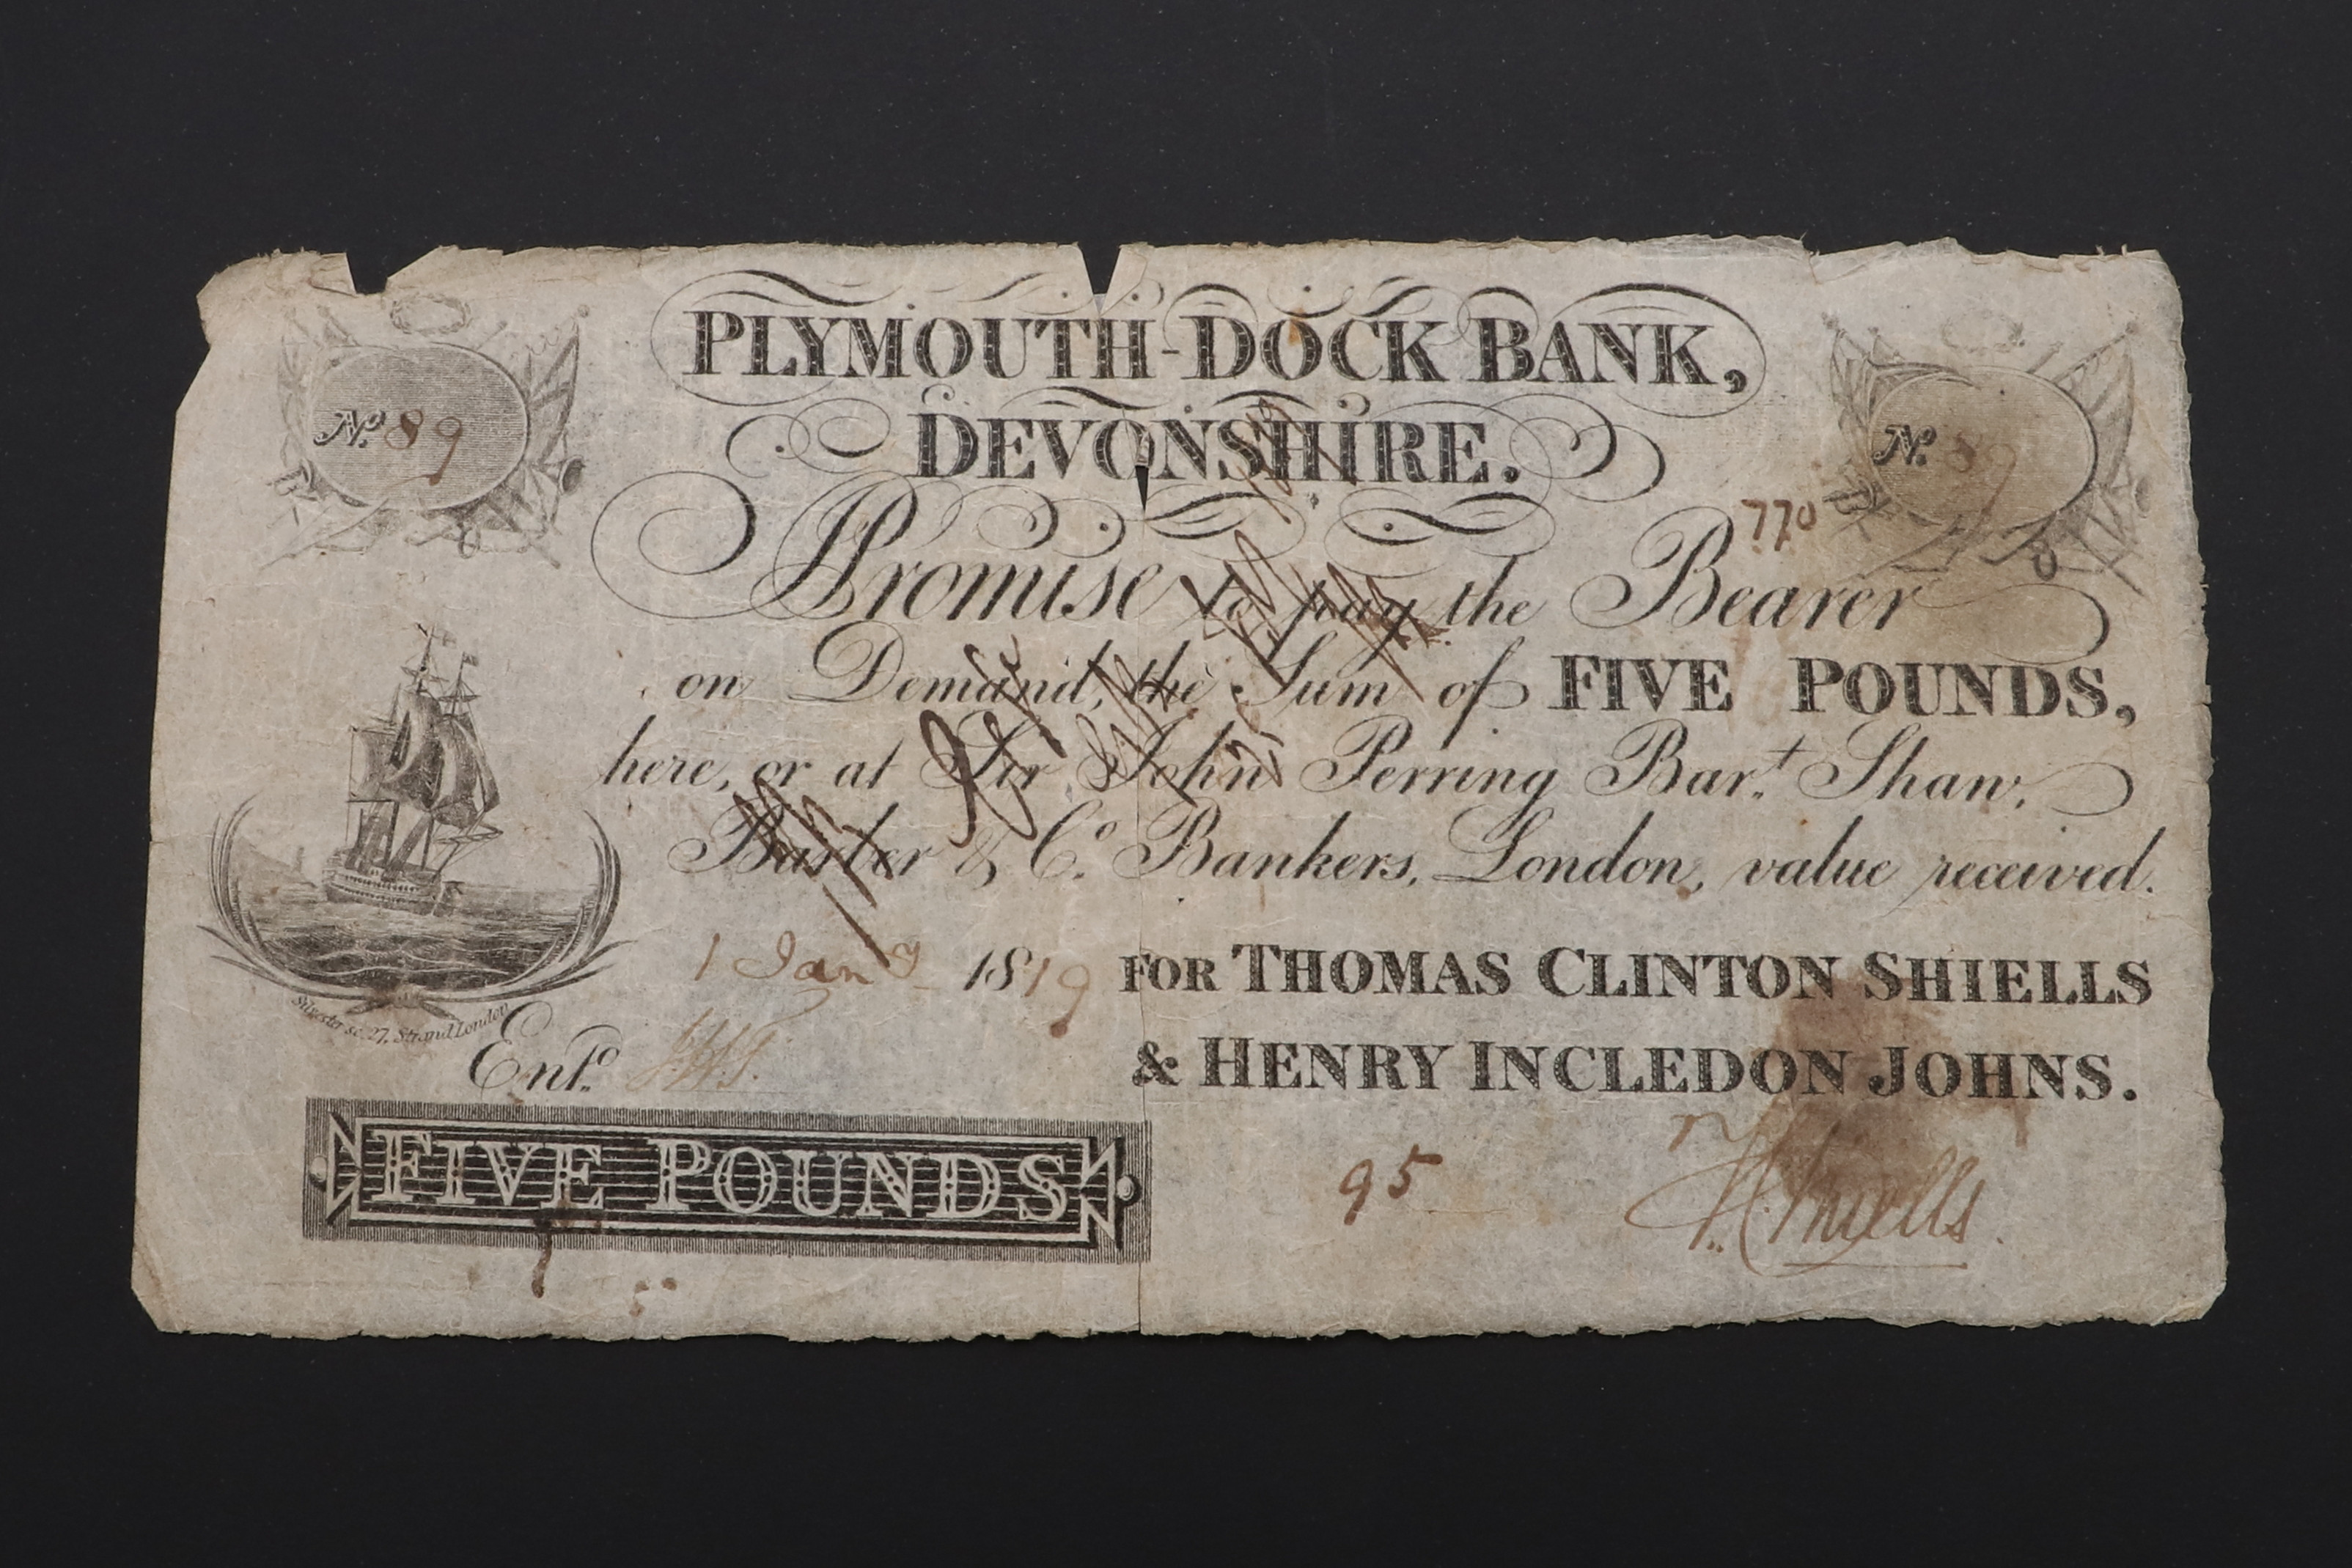 PLYMOUTH-DOCK BANK,
DEVONSHIRE.
No. 89
No. 89
770
Promise to pay the Bearer
on Demand, the Sum of FIVE POUNDS,
here, or at Sir John Perring Bar.t Shaw,
Barber & Co. Bankers, London, value received.
1 Jany 1819 FOR THOMAS CLINTON SHIELLS
& HENRY INCLEDON JOHNS.
Silvester sc. 27, Strand London
Entd.
FIVE POUNDS
95
T. C. Shiells